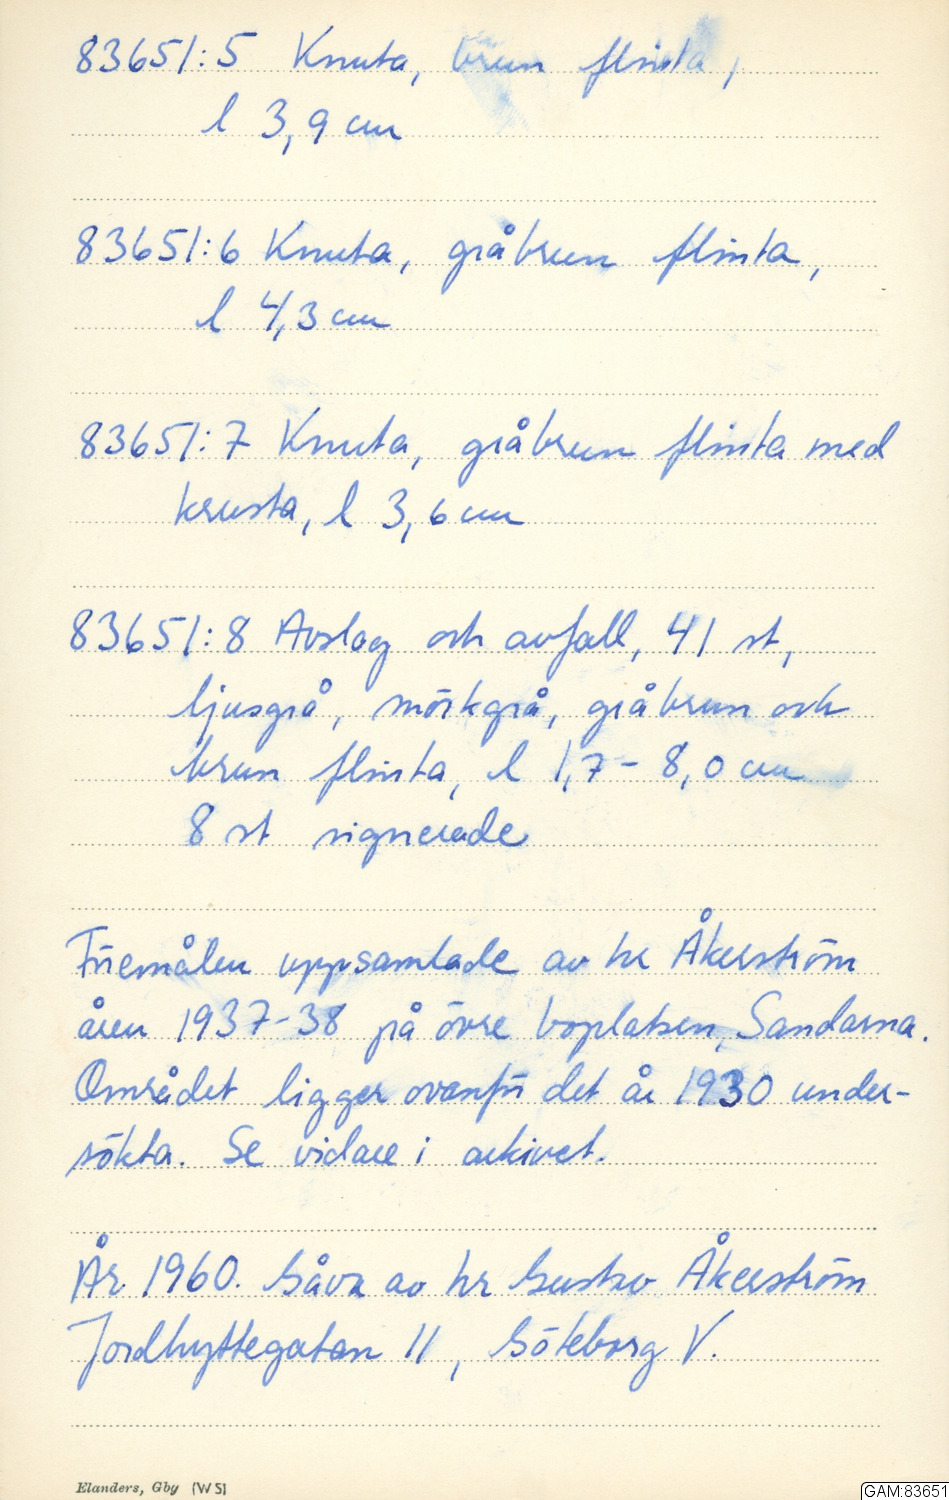 83651:5 Knuta, brun flinta,
l 3,9 cm
83651:6 Knuta, gråbrun flinta,
l 4,3 cm
83651:7 Knuta, gråbrun flinta med
krusta, l 3,6 cm
83651:8 Avslag och avfall, 41 st,
ljusgrå, mörkgrå, gråbrun och
brun flinta, l 1,7-8,0 cm
8 st signerade
Föremålen uppsamlade av hr Åkerström
åren 1937-38 på övre boplatsen, Sandarna.
Området ligger ovanför det år 1930 under-
sökta. Se vidare i arkivet.
År 1960. Gåva av hr Gustav Åkerström
Jordhyttegatan 11, Göteborg V.
Elanders, Gby (WS)
GAM:83651